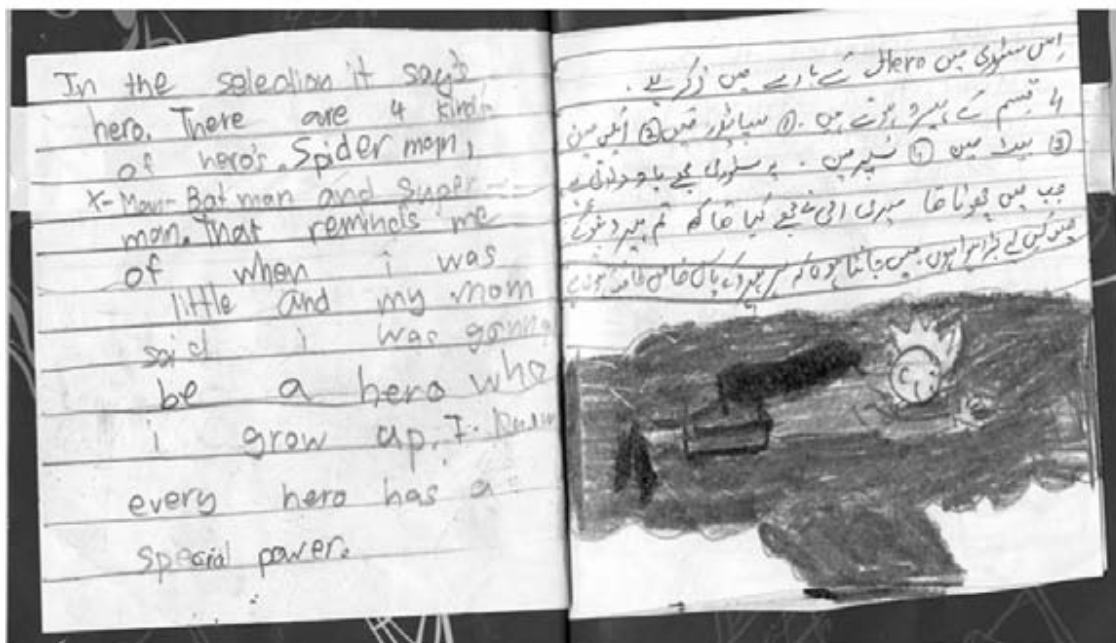 In the selection it say's
hero. There are 4 kinds
of hero's. Spider man,
X-Man-Batman and Super-
man. That reminds me
of when i was
little and my mom
said i was gonna
be a hero who
i grow up. I
every hero has a
special power.
اِس سٹوری میں Hero کے بارے میں ذکر ہے .
4 قسم کے ہیرو ہوتے ہیں . ① سپائڈر مین ② ایکس مین
③ بیٹ مین ④ سُپر مین . یہ سٹوری مجھے یاد دلاتی ہے
جب میں چھوٹا تھا میری امی نے مجھے کہا تھا کہ تم ہیرو بنو گے
میں جانتا ہوں کہ ہر ہیرو کے پاس خاص طاقت ہوتی ہے